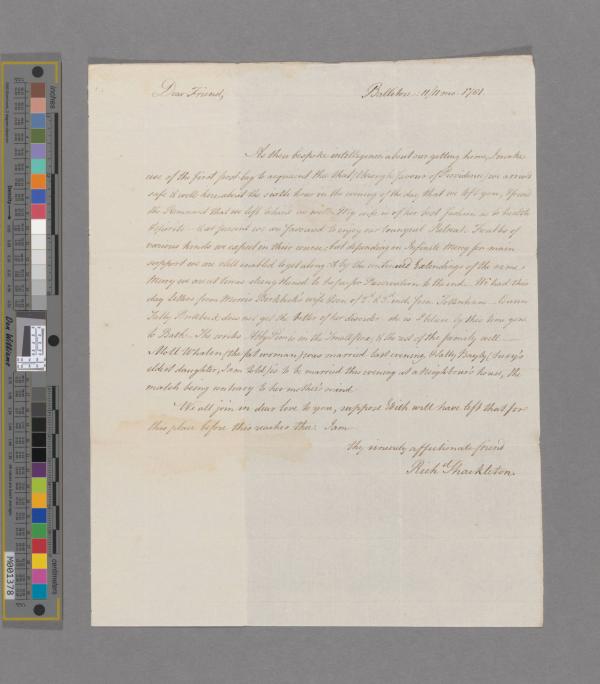 Dear Friend, Ballitore 11/11 mo. 1781
As thou bespoke intelligence about our getting home, I make
use of the first post by to acquaint thee that (through favour of Providence) we arrived
safe & well here about the sixth hour in the evening of the day that we left you, & found
the Remnant that we left behind us well. My wife is of her best fashion as to health
& spirits — & at present we are favoured to enjoy our tranquil Retreat. Troubles of
various kinds we expect in their course, but depending on Infinite Mercy for main
support we are still enabled to get along; & by the continued Extendings of the same
Mercy we are at times strengthened to hope for Preservation to the end. We had this
day letters from Morris Birkbeck's wife & son of 2d & 3d inst. from Tottenham. Cousin
Sally Birkbeck does not get the better of her disorder. She is I believe by this time gone
to Bath. She writes Abby Pim is in the Small pox, & the rest of the family well —
Moll Whalen (the fat woman) was married last evening, & Sally Bayly,
eldest daughter, I am told is to be married this evening at a Neighbour's house, the
match being contrary to her mother's mind.
We all join in dear love to you, suppose Edith will have left that for
this place before this reaches thee. I am
thy sincerely affectionate friend
Richd Shackleton.
inches
centimeters
Don Williams
Density
M001378